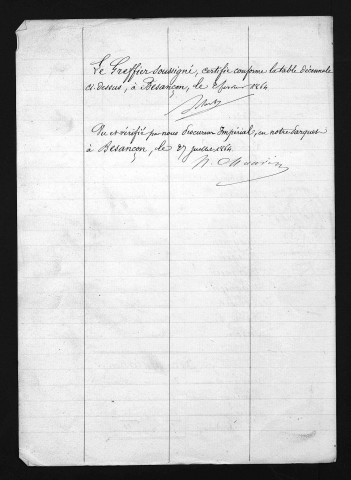 Le Greffier soussigné, certifie conforme la table décennale
ci-dessus, à Besançon, le 1864
Vu et vérifié par nous Procureur Impérial, en notre Parquet
à Besançon, le 27 juillet 1864